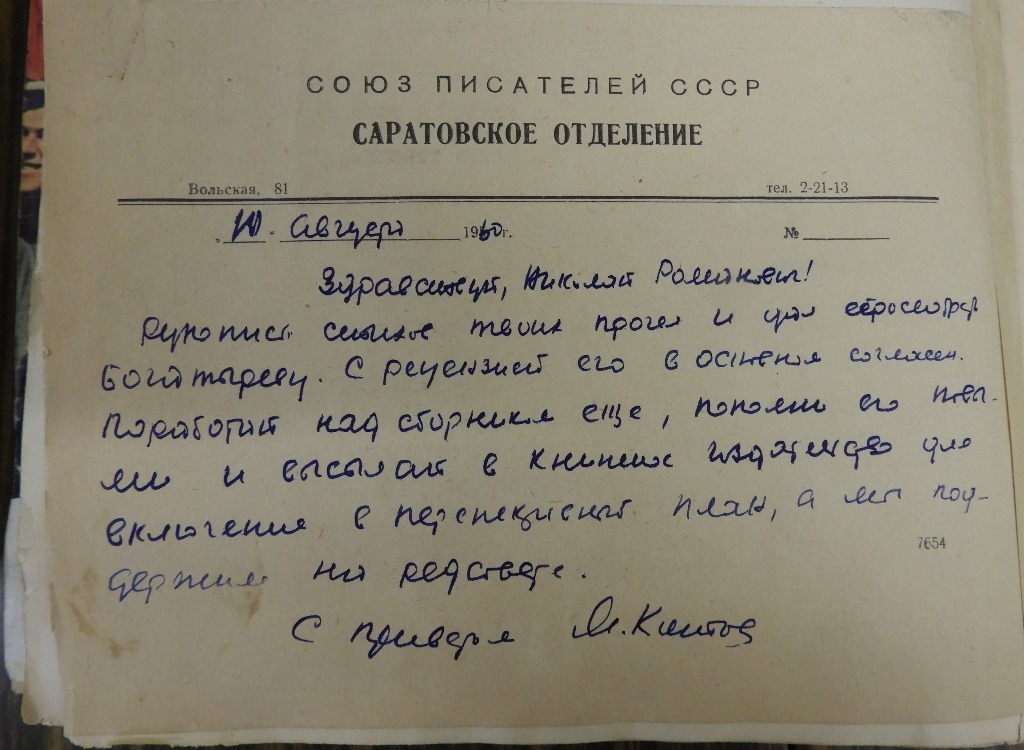 СОЮЗ ПИСАТЕЛЕЙ СССР
САРАТОВСКОЕ ОТДЕЛЕНИЕ
Вольская, 81 тел. 2-21-13
10. Августа 1960г. №
Здравствуй, Николай Романович!
Рукопись твоих прочел и
Богатыреву. С рецензией его в основном согласен.
Поработай над сборником еще, пополни его новы-
ми и высылай в книжное издательство для
включения в перспективный план, а мы под-
7654
держим на редсовете.
С приветом М.